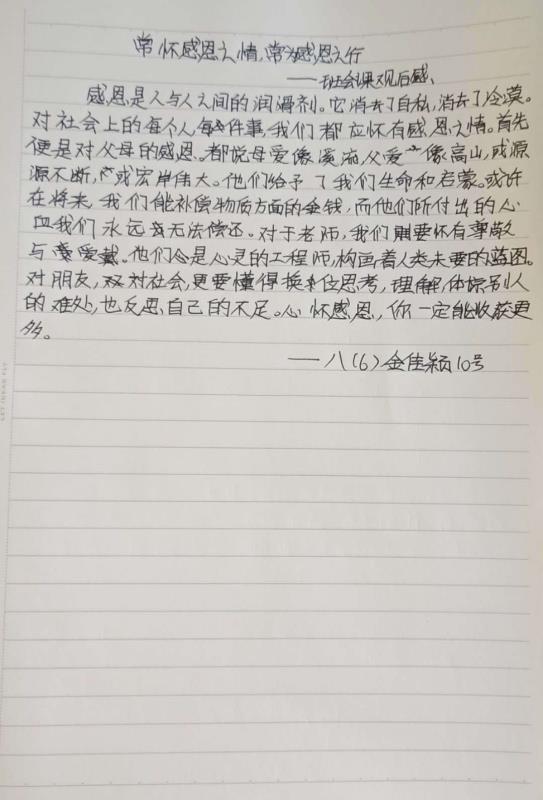 常怀感恩之情,常为感恩之行
——班会课观后感
感恩是人与人之间的润滑剂。它消去了自私,消去了冷漠。
对社会上的每个人每件事,我们都应怀有感恩之情。首先
便是对父母的感恩。都说母爱像溪流,父爱像高山,或源
源不断,或宏岸伟大。他们给予了我们生命和启蒙。或许
在将来,我们能补偿物质方面的金钱,而他们所付出的心
血我们永远无法偿还。对于老师,我们则要怀有尊敬
与爱戴。他们是心灵的工程师,构画着人类未要的蓝图。
对朋友,对社会,更要懂得换位思考,理解体谅别人
的难处,也反思自己的不足。心怀感恩,你一定能收获更
多。
——八(6)金佳颖10号